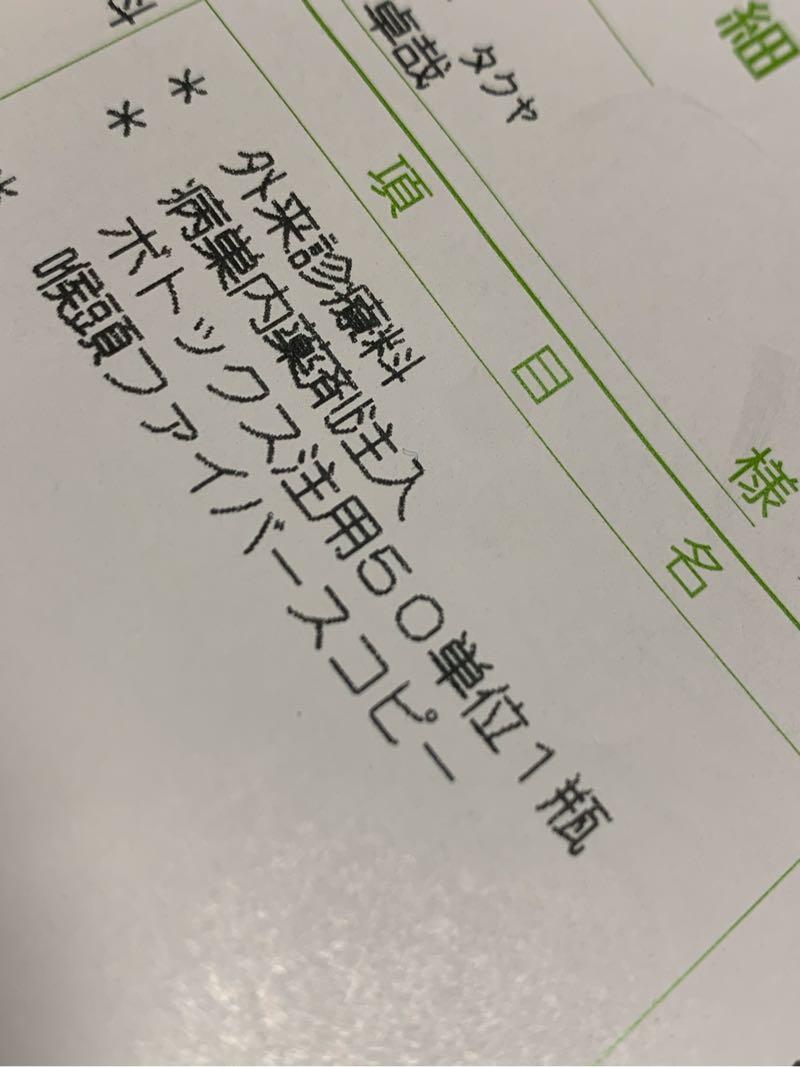 細
タクヤ
卓哉 様
項目名
料
* 外来診療料
* 病巣内薬剤注入
ボトックス注用50単位1瓶
* 喉頭ファイバースコピー